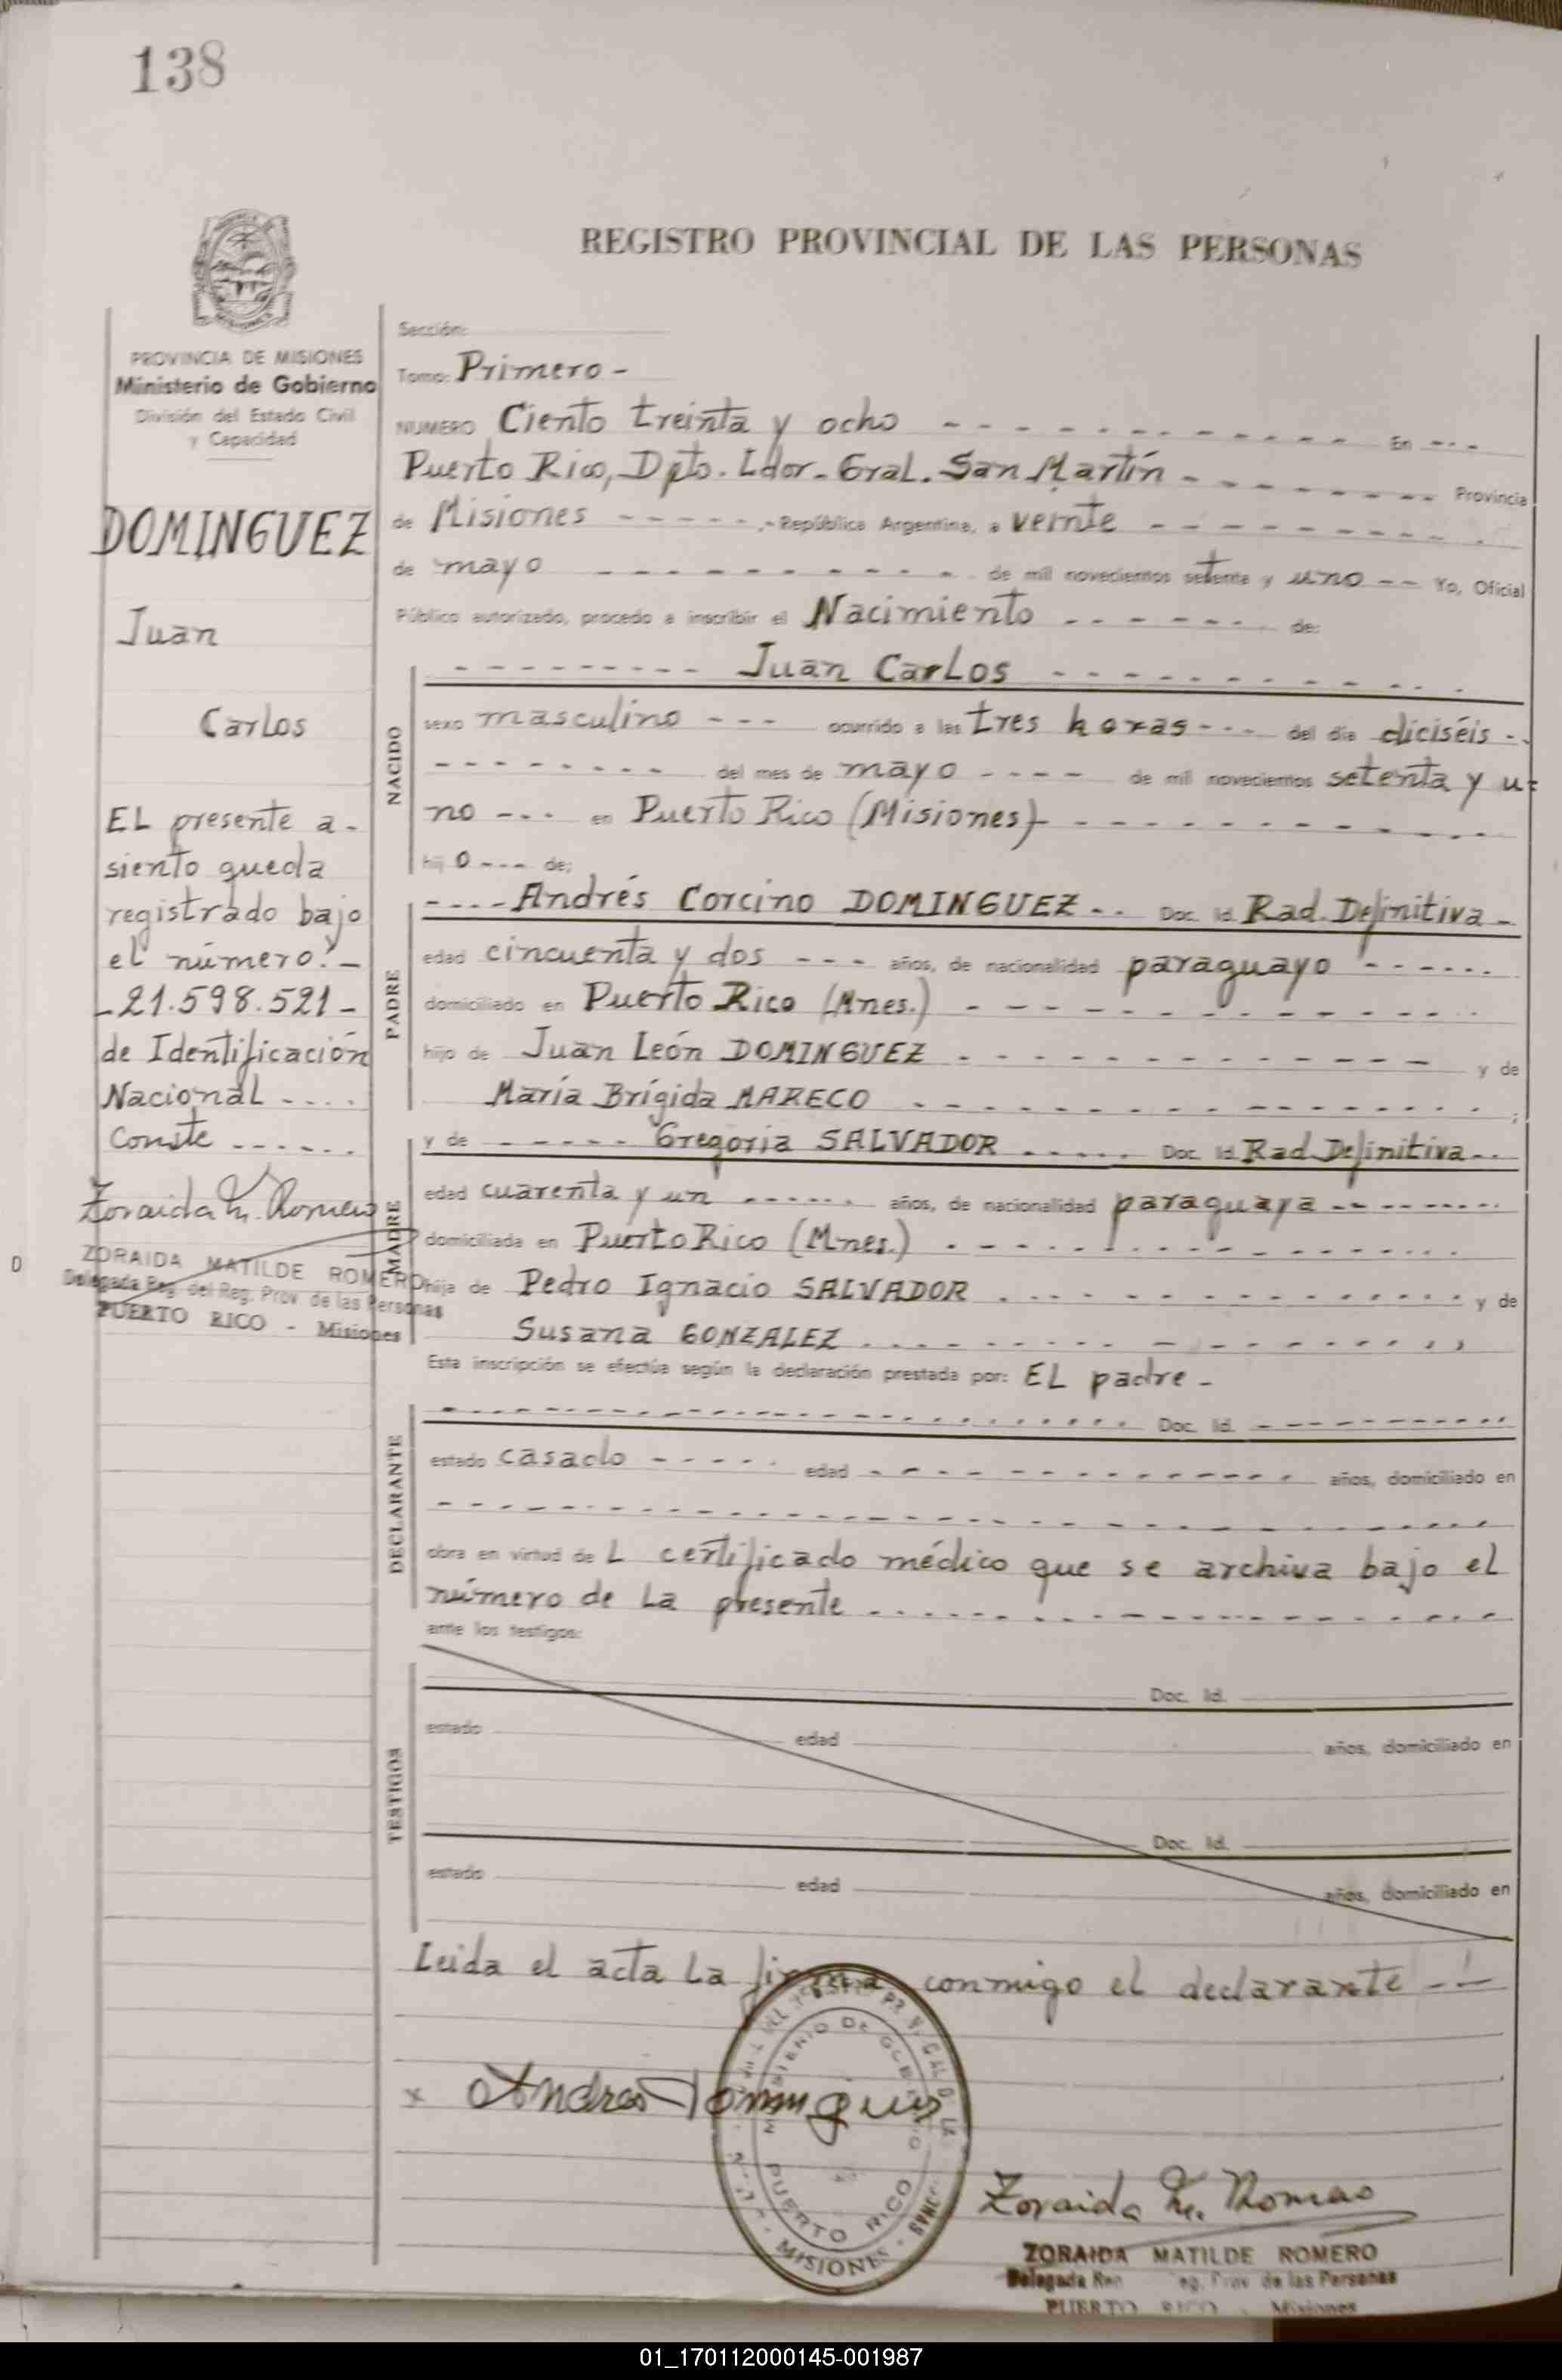 138
REGISTRO PROVINCIAL DE LAS PERSONAS
PROVINCIA DE MISIONES
Ministerio de Gobierno
División del Estado Civil
y Capacidad
DOMINGUEZ
Juan
Carlos
EL presente a-
siento queda
registrado bajo
el número:-
-21.598.521-
de Identificación
Nacional ----
Conste -----
Zoraida M. Romero
ZORAIDA MATILDE ROMERO
Delegada Reg. del Reg. Prov. de las Personas
PUERTO RICO - Misiones
D
Sección:
Tomo: Primero -
NUMERO Ciento treinta y ocho - - - En ---
Puerto Rico, Dpto. Ldor. Gral. San Martín - - - Provincia
de Misiones - - - República Argentina, a veinte - - -
de mayo - - - de mil novecientos setenta y uno -- Yo, Oficial
Público autorizado, procedo a inscribir el Nacimiento - - - de:
- - - Juan Carlos - - -
NACIDO
sexo masculino --- ocurrido a las tres horas --- del día diciséis --
- - - del mes de mayo ---- de mil novecientos setenta y u=
no --- en Puerto Rico (Misiones) - - -
hijo --- de:
---- Andrés Corcino DOMINGUEZ -- Doc. Id. Rad. Definitiva -
PADRE
edad cincuenta y dos --- años, de nacionalidad paraguayo ------
domiciliado en Puerto Rico (Mnes.) - - -
hijo de Juan León DOMINGUEZ - - - y de
María Brígida MARECO - - - ;
y de ------ Gregoria SALVADOR ----- Doc. Id. Rad. Definitiva --
MADRE
edad cuarenta y un ------ años, de nacionalidad paraguaya ------
domiciliada en Puerto Rico (Mnes.) - - -
hija de Pedro Ignacio SALVADOR - - - y de
Susana GONZALEZ - - - ,
Esta inscripción se efectúa según la declaración prestada por: EL padre -
- - - Doc. Id. - - -
DECLARANTE
estado casado ----- edad - - - años, domiciliado en
- - -
obra en virtud de L certificado médico que se archiva bajo el
número de La presente - - -
ante los testigos:
Doc. Id.
TESTIGOS
estado edad años, domiciliado en
Doc. Id.
estado edad años, domiciliado en
Leida el acta La firma conmigo el declarante --
x Andres Dominguez
MINISTERIO DE GOBIERNO
PUERTO RICO
MISIONES
Zoraida M. Romero
ZORAIDA MATILDE ROMERO
Delegada Reg. Prov de las Personas
PUERTO RICO - Misiones
01_170112000145-001987